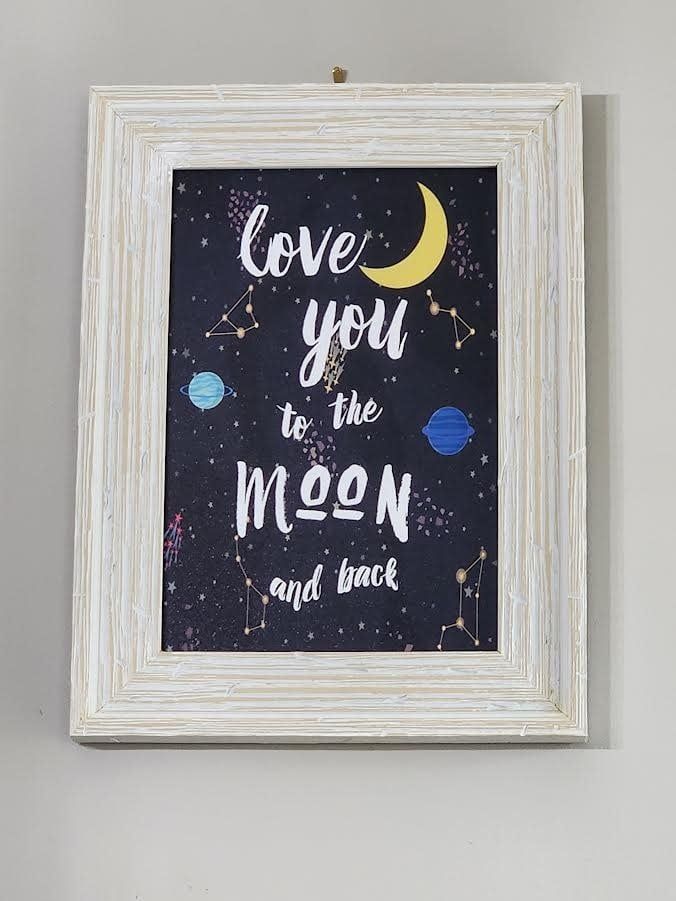 love
you
to the
MOON
and back